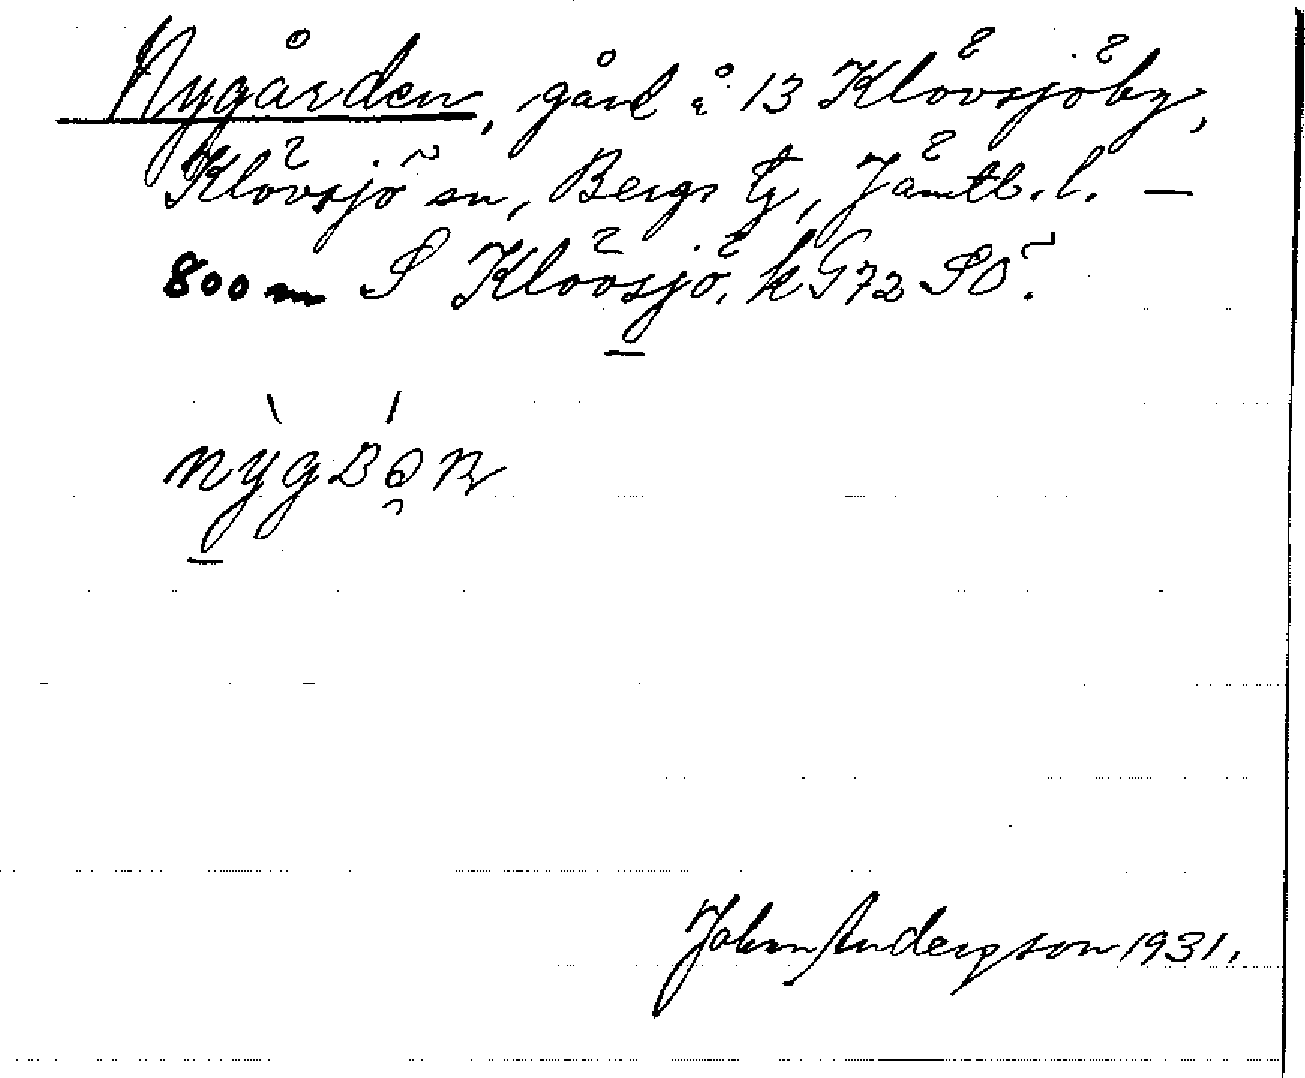 Nygården, gård å 13 Klövsjöby,
Klövsjö sn, Bergs tg, Jämtl. l. —
800 m S Klövsjö, k G72 SÖ.
John Andersson 1931.